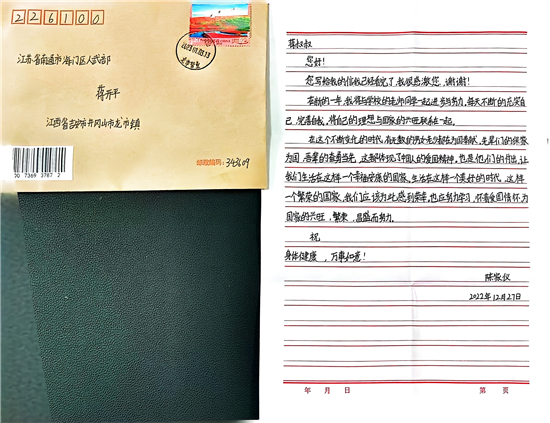 226100
江苏省南通市海门区人武部
蒋开平
江西省吉安市井冈山市龙市镇
邮政编码：343609
蒋叔叔
您好！
您写给我的信我已经看完了，我很感激您，谢谢！
在新的一年，我将与学校的老师同学一起进步与努力，每天不断的充实自
己，完善自我，将自己的理想与国家的兴旺联系在一起。
在这个不断变化的时代，有无数的男女无
为国，
这都体现了中国人的爱国精神，也是他们的付出，让
我们生活在这样一个幸福安康的国家，生活在这样一个美好的时代，这样
一个繁荣的国家，我们应该为此感到荣幸，也应努力学习，怀着爱国情怀为
国家的兴旺，繁荣，昌盛而努力。
祝
身体健康，万事如意！
陈
2022年12月27日
年 月 日
第 页